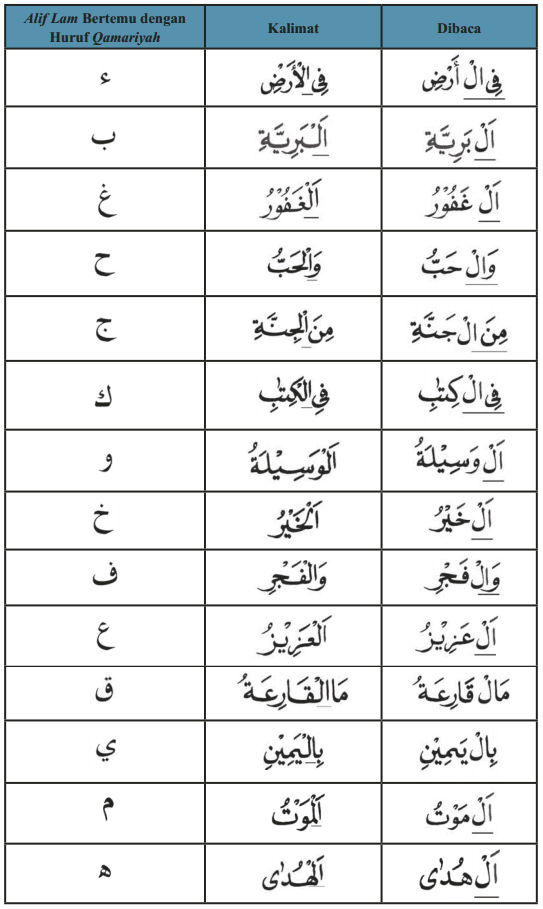 Alif Lam Bertemu dengan Huruf Qamariyah Kalimat Dibaca
ء فِى الْأَرْضِ فِى الْ أَرْضِ
ب اَلْبَرِيَّةِ اَلْ بَرِيَّةِ
غ اَلْغَفُوْرُ اَلْ غَفُوْرُ
ح وَالْحَبُّ وَالْ حَبُّ
ج مِنَ الْجِنَّةِ مِنَ الْ جَنَّةِ
ك فِى الْكِتٰبِ فِى الْ كِتٰبِ
و اَلْوَسِيْلَةُ اَلْ وَسِيْلَةُ
خ اَلْخَيْرُ اَلْ خَيْرُ
ف وَالْفَجْرِ وَالْ فَجْرِ
ع اَلْعَزِيْزُ اَلْ عَزِيْزُ
ق مَاالْقَارِعَةُ مَالْ قَارِعَةُ
ي بِالْيَمِيْنِ بِالْ يَمِيْنِ
م اَلْمَوْتُ اَلْ مَوْتُ
ه اَلْهُدٰى اَلْ هُدٰى